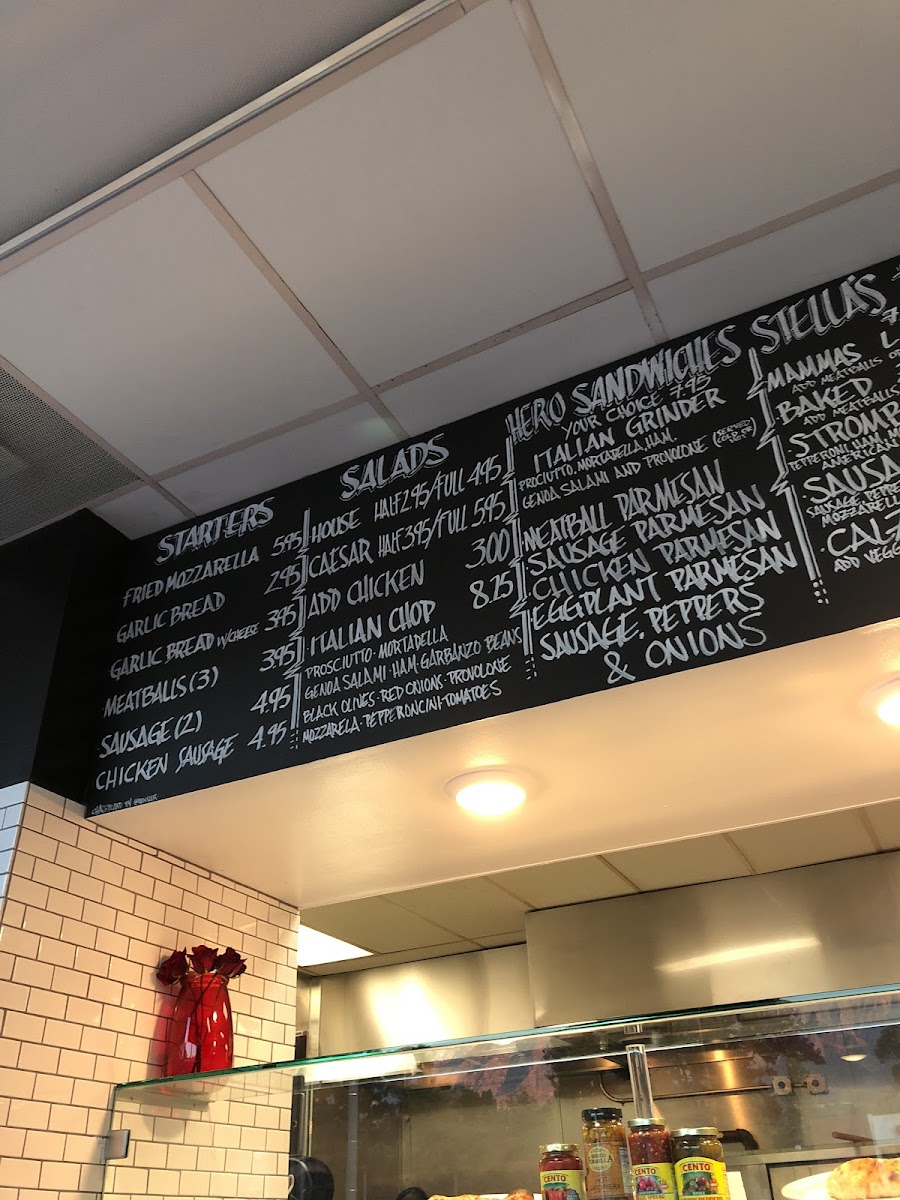 STARTERS
FRIED MOZZARELLA 5.95
GARLIC BREAD 2.95
GARLIC BREAD W/CHEESE 3.95
MEATBALLS (3) 3.95
SAUSAGE (2) 4.95
CHICKEN SAUSAGE 4.95
SALADS
HOUSE HALF 2.95/FULL 4.95
CAESAR HALF 3.95/FULL 5.95
ADD CHICKEN 3.00
ITALIAN CHOP 8.25
PROSCIUTTO · MORTADELLA
GENOA SALAMI · HAM · GARBANZO BEANS
BLACK OLIVES · RED ONIONS · PROVOLONE
MOZZARELA · PEPPERONCINI · TOMATOES
HERO SANDWICHES
YOUR CHOICE 7.95
ITALIAN GRINDER
PROCIUTTO · MORTABELLA, HAM,
GENOA SALAMI AND PROVOLONE (SERVED COLD OR HOT)
MEATBALL PARMESAN
SAUSAGE PARMESAN
CHICKEN PARMESAN
EGGPLANT PARMESAN
SAUSAGE, PEPPERS
& ONIONS
STELLA'S
MAMMAS L
ADD MEATBALLS OR
BAKED
ADD MEATBALLS
STROMB
PEPPERONI, HAM,
AMERICAN
SAUSA
SAUSAGE, PEPPE
MOZZARELL
CALZ
ADD VEGG
CENTO
CENTO
CENTO